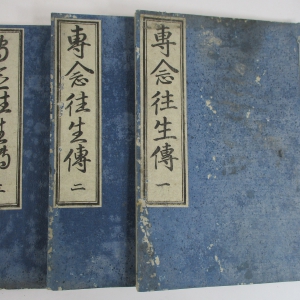 專念往生傳 一
專念往生傳 二
專念往生傳 三